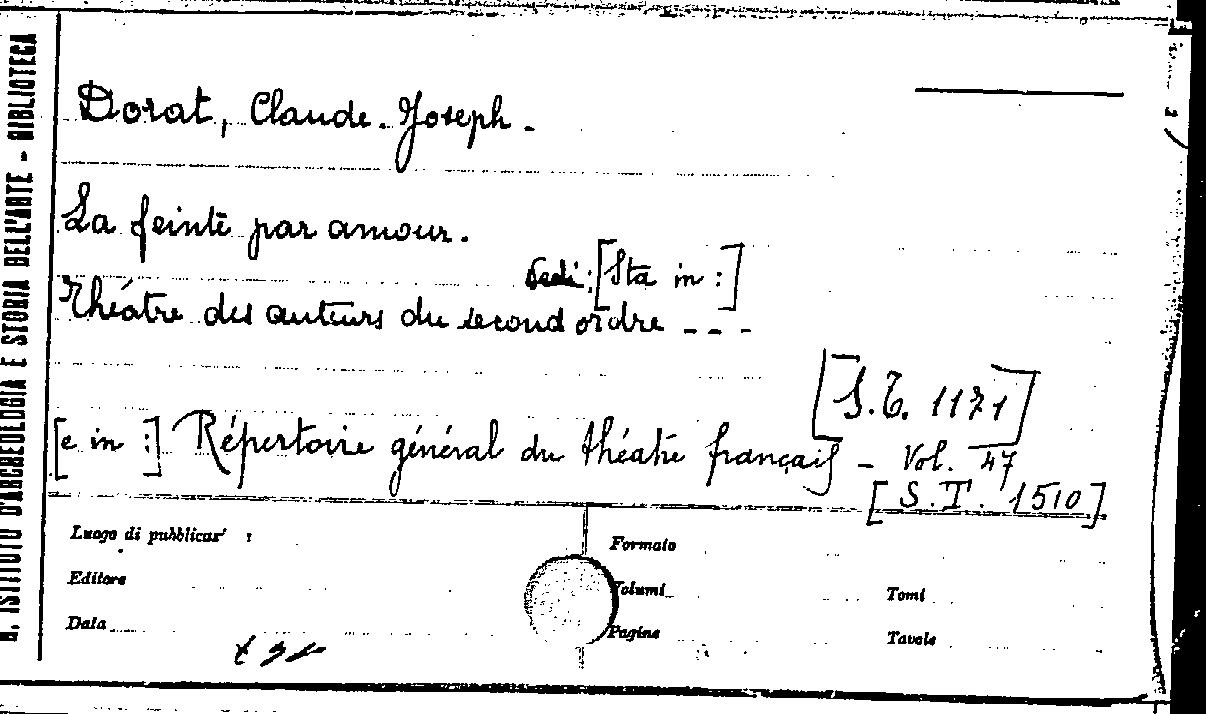 R. ISTITUTO D'ARCHEOLOGIA E STORIA DELL'ARTE - BIBLIOTECA
Dorat, Claude-Joseph.
La feinte par amour.
Vedi: [Sta in:]
Théâtre des auteurs du second ordre ---
[S.T. 1171]
[e in:] Répertoire général du théâtre français - Vol. 47
[S.T. 1510]
Luogo di pubblicaz.
Formato
Editore
Volumi
Tomi
Data
Pagine
Tavole